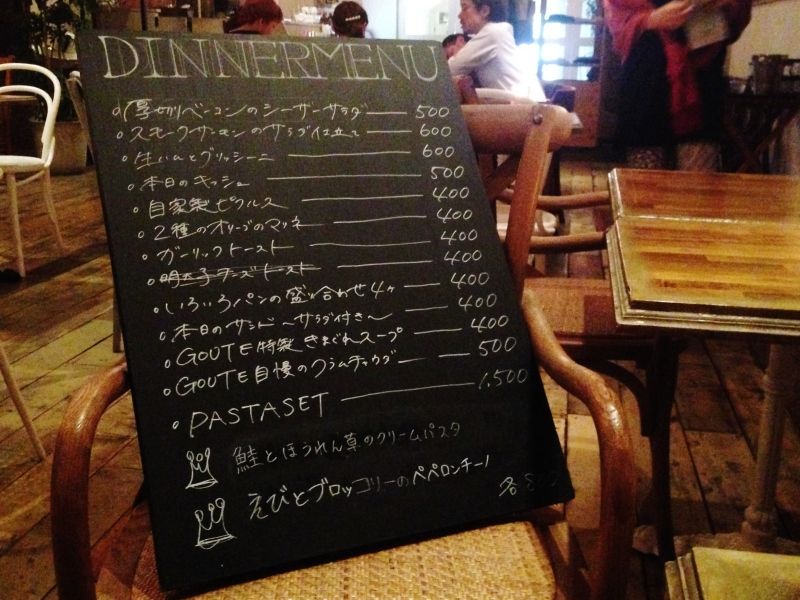 DINNERMENU
厚切りベーコンのシーザーサラダ 500
スモークサーモンのサラダ仕立て 600
生ハムとグリッシーニ 600
本日のキッシュ 500
自家製ピクルス 400
2種のオリーブのマリネ 400
ガーリックトースト 400
明太子チーズトースト 400
いろいろパンの盛り合わせ4ヶ 400
本日のサンド〜サラダ付き〜 400
GOUTE特製きまぐれスープ 400
GOUTE自慢のクラムチャウダー 500
PASTASET 1,500
鮭とほうれん草のクリームパスタ
えびとブロッコリーのペペロンチーノ
各